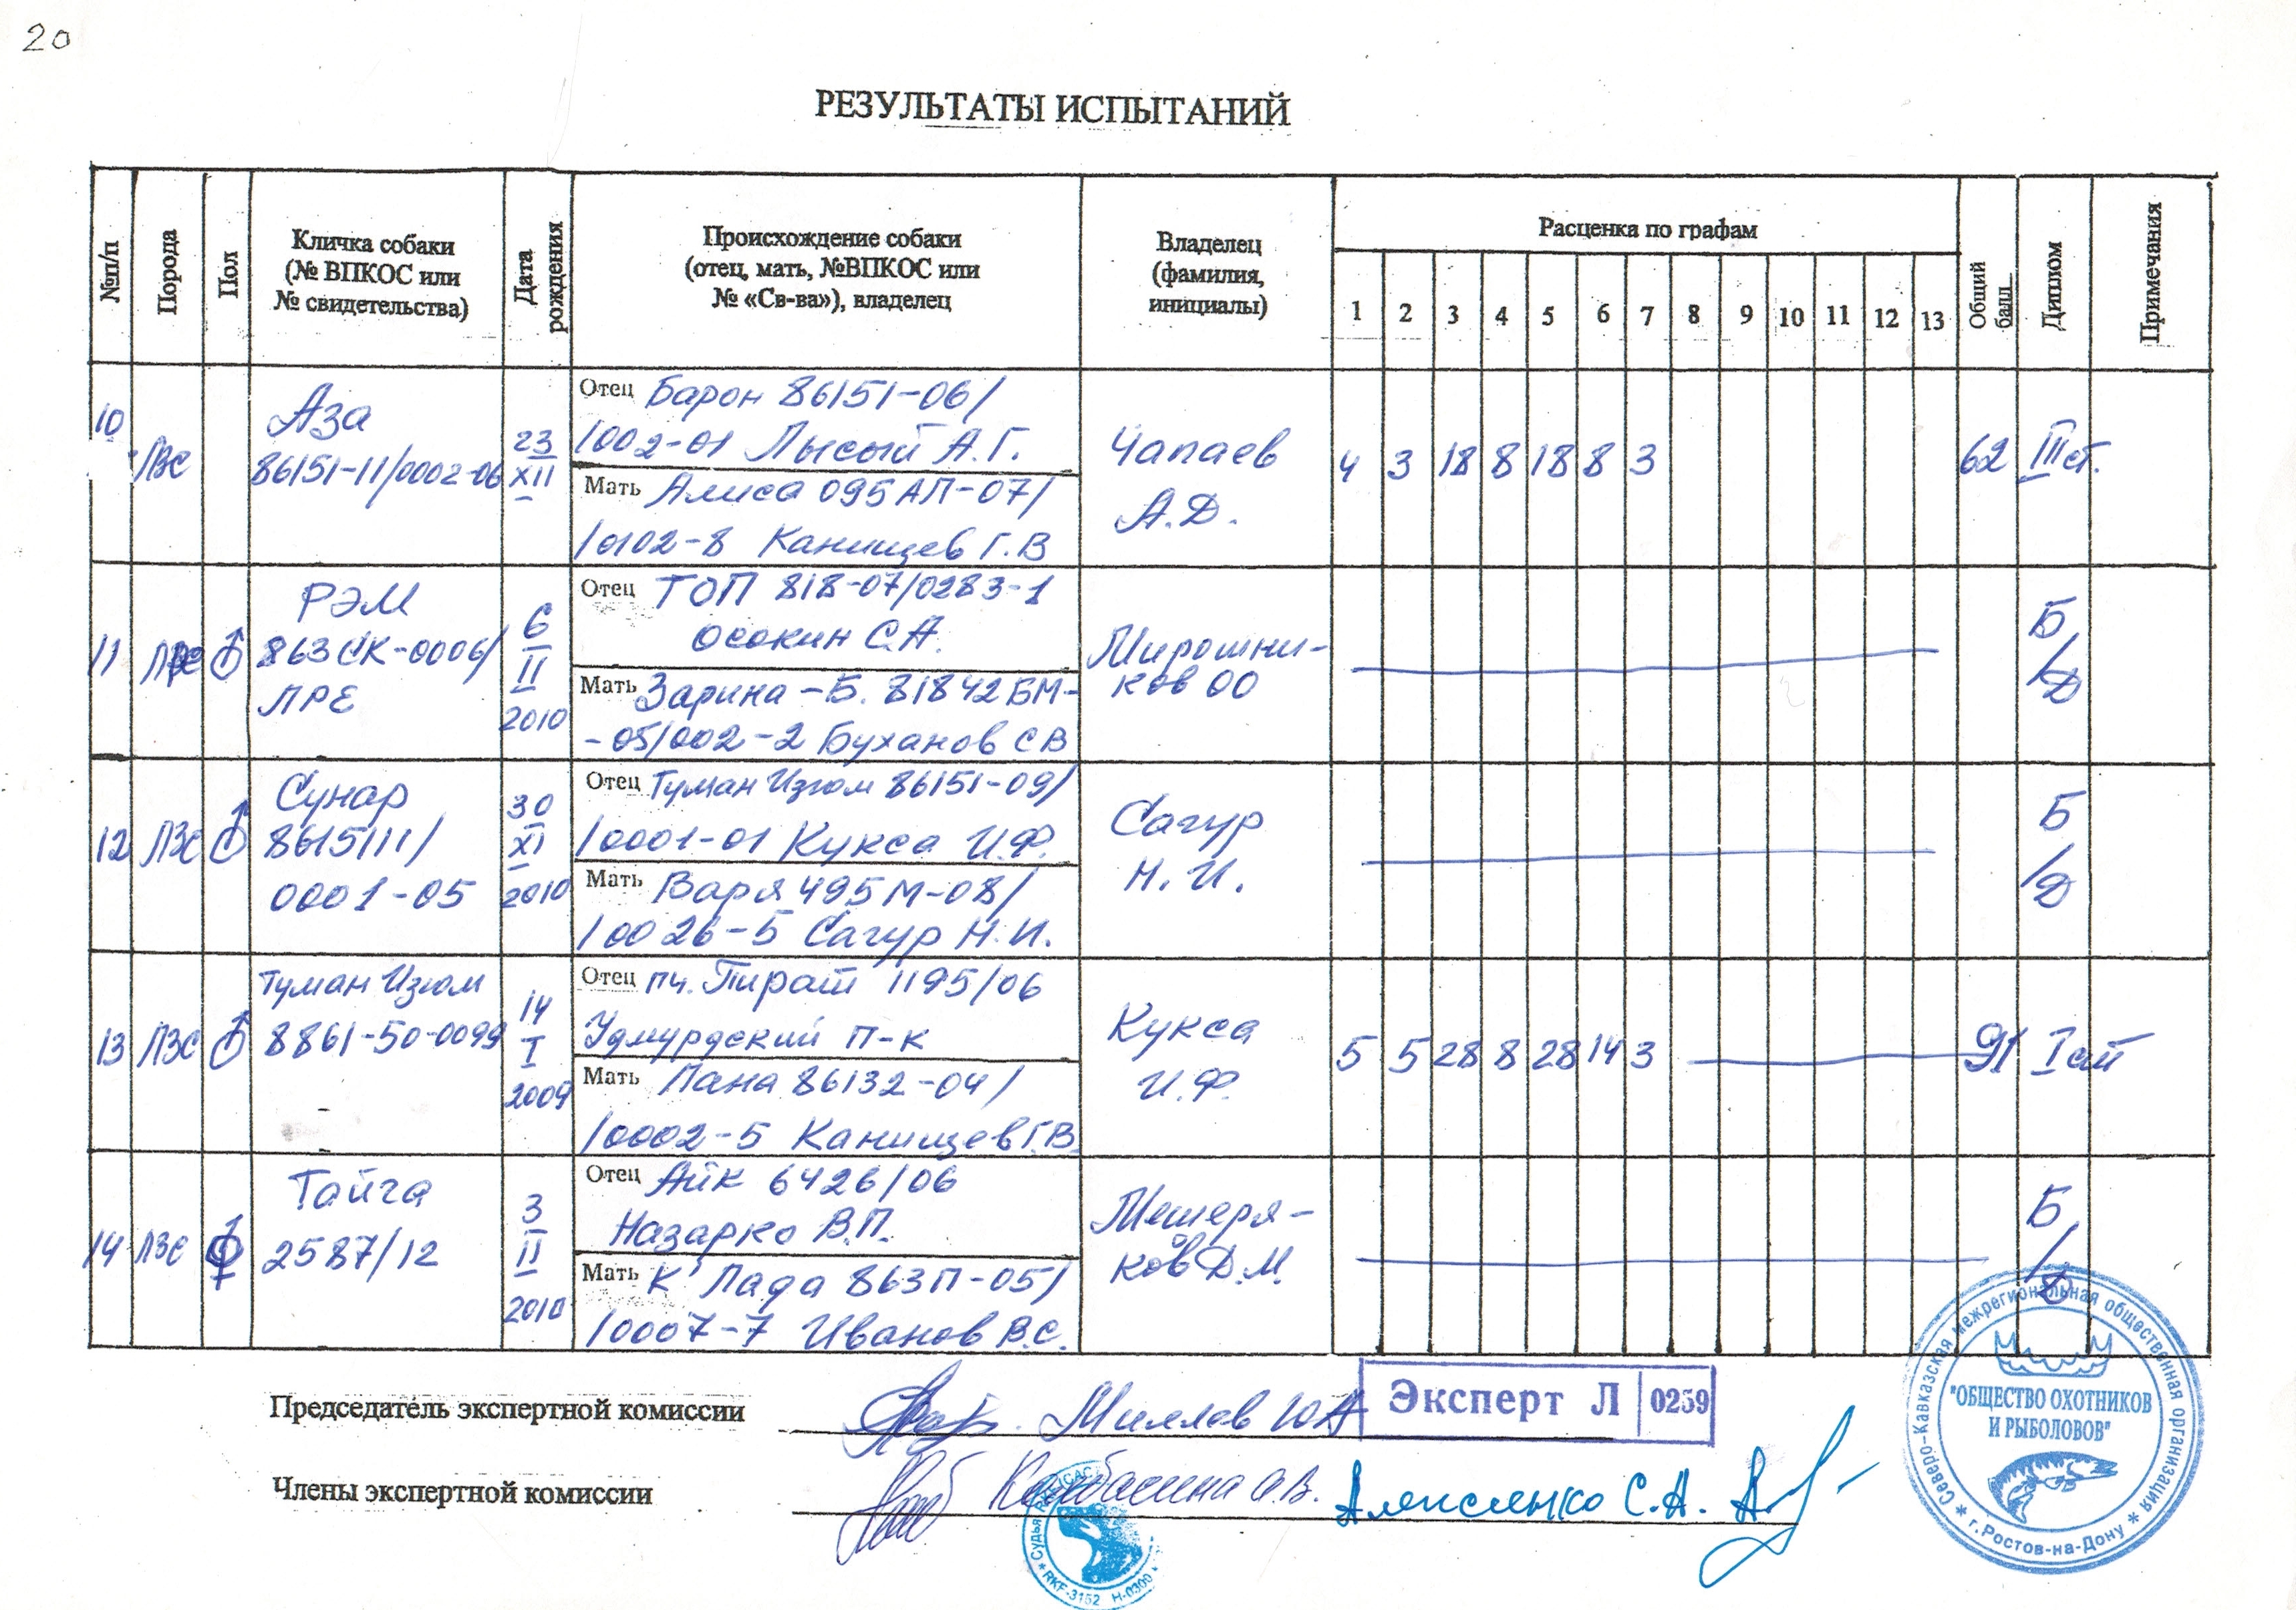 20
РЕЗУЛЬТАТЫ ИСПЫТАНИЙ
№п/п
Порода
Пол
Кличка собаки
(№ ВПКОС или
№ свидетельства)
Дата
рождения
Происхождение собаки
(отец, мать, №ВПКОС или
№ «Св-ва»), владелец
Владелец
(фамилия,
инициалы)
Расценка по графам
1 2 3 4 5 6 7 8 9 10 11 12 13
Общий
балл
Диплом
Примечания
10
ЛВС
Аза
86151-11/0002-06
23
XII
Отец Барон 86151-06/
/002-01 Лысый А.Г.
Мать Алиса 095АЛ-07/
/0102-8 Канищев Г.В
Чапаев
А.Д.
4 3 18 8 18 8 3
62 III ст.
11
♂
РЭМ
863СК-0006/
ЛРЕ
6
II
2010
Отец ТОП 818-07/0283-1
Осокин С.А.
Мать Зарина-Б. 81842БМ-
-05/002-2 Буханов СВ
Мирошни-
ков ОО
Б
/Д
12 ЛЗС ♂
Сунар
8615111/
0001-05
30
XI
2010
Отец Туман Изюм 86151-09/
/0001-01 Кукса И.Ф.
Мать Варя 495М-08/
/0026-5 Сагур Н.И.
Сагур
Н.И.
Б
/Д
13 ЛЗС ♂
Туман Изюм
8861-50-0099
14
I
2009
Отец пч. Пират 1195/06
Удмурдский П-к
Мать Лана 86132-04/
/0002-5 Канищев Г.В
Кукса
И.Ф.
5 5 28 8 28 14 3
91 I ст
14 ЛЗС ♀
Тайга
2587/12
3
II
2010
Отец Айк 6426/06
Назарко В.П.
Мать К' Лада 863П-05/
/0007-7 Иванов В.С.
Мещеря-
ков Д.М.
Б
/Д
Председатель экспертной комиссии
Эксперт Л 0259
Члены экспертной комиссии
Алексенко С.А.
Судья
RKF-3152 Н-0300
Северо-Кавказская межрегиональная общественная организация
"ОБЩЕСТВО ОХОТНИКОВ
И РЫБОЛОВОВ"
г.Ростов-на-Дону